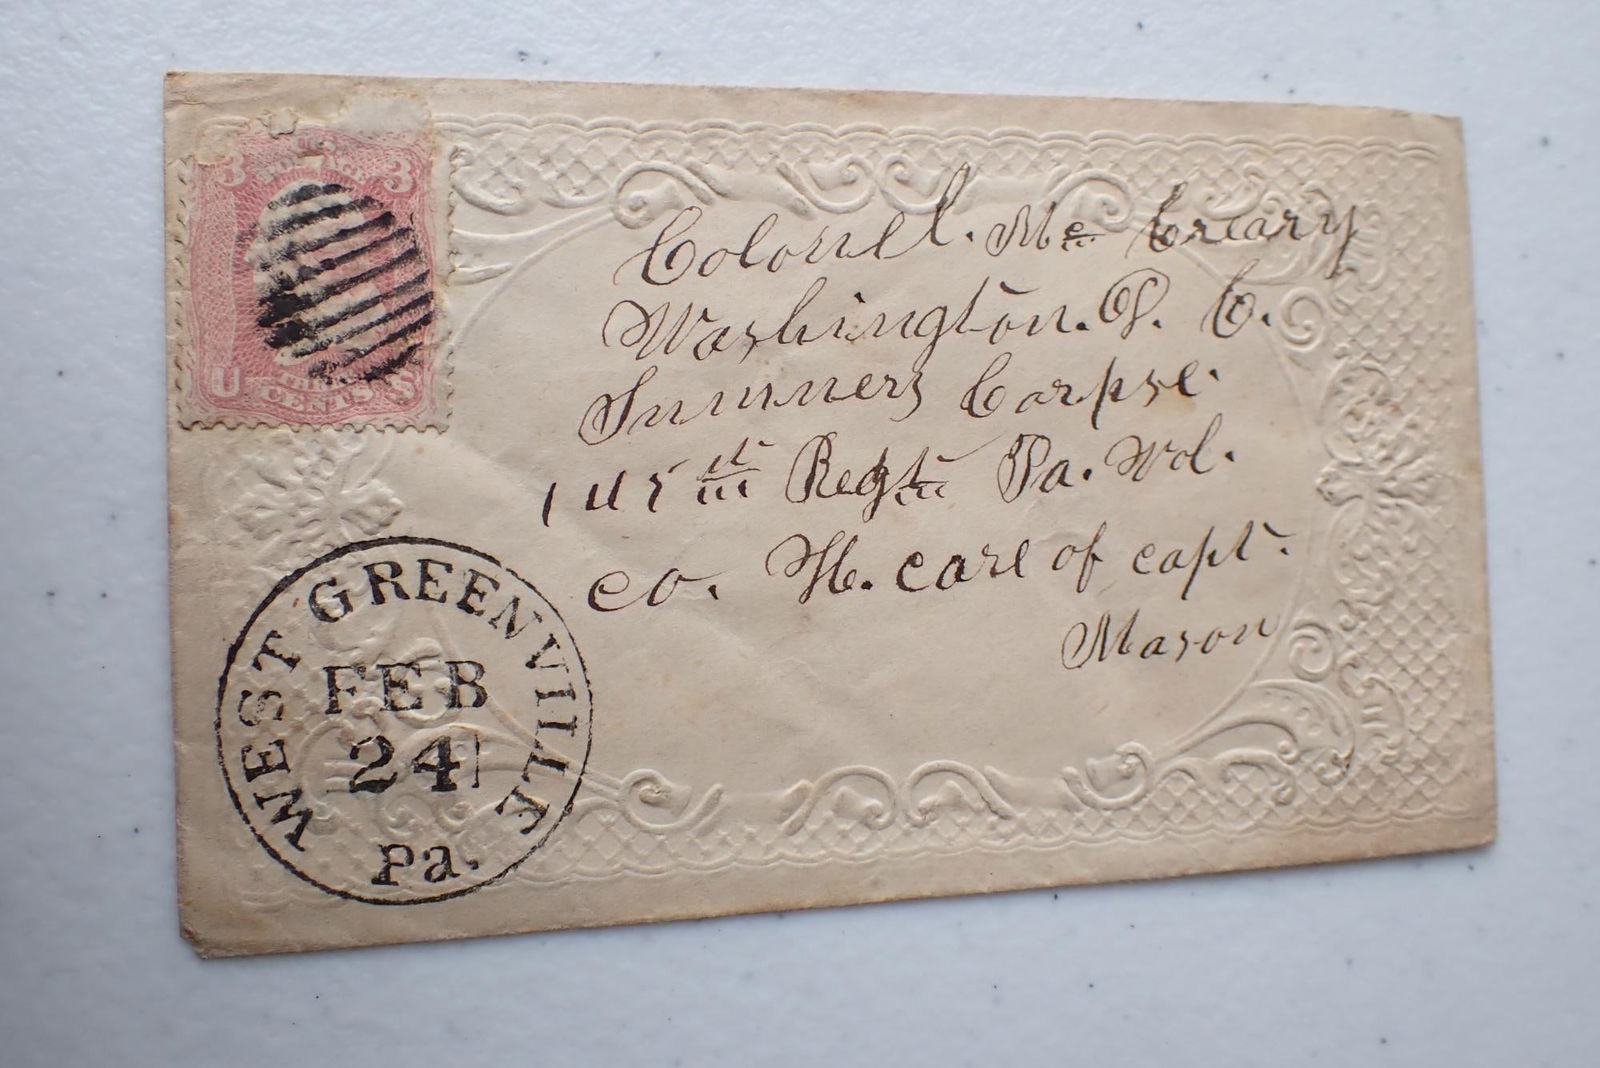 3 3
U S
CENTS
Colonel. Mc Creary
Washington. D. C.
Sumners Corpse.
145th Regt. Pa. Vol.
co. H. care of capt.
Mason
WEST GREENVILLE
FEB
24
Pa.